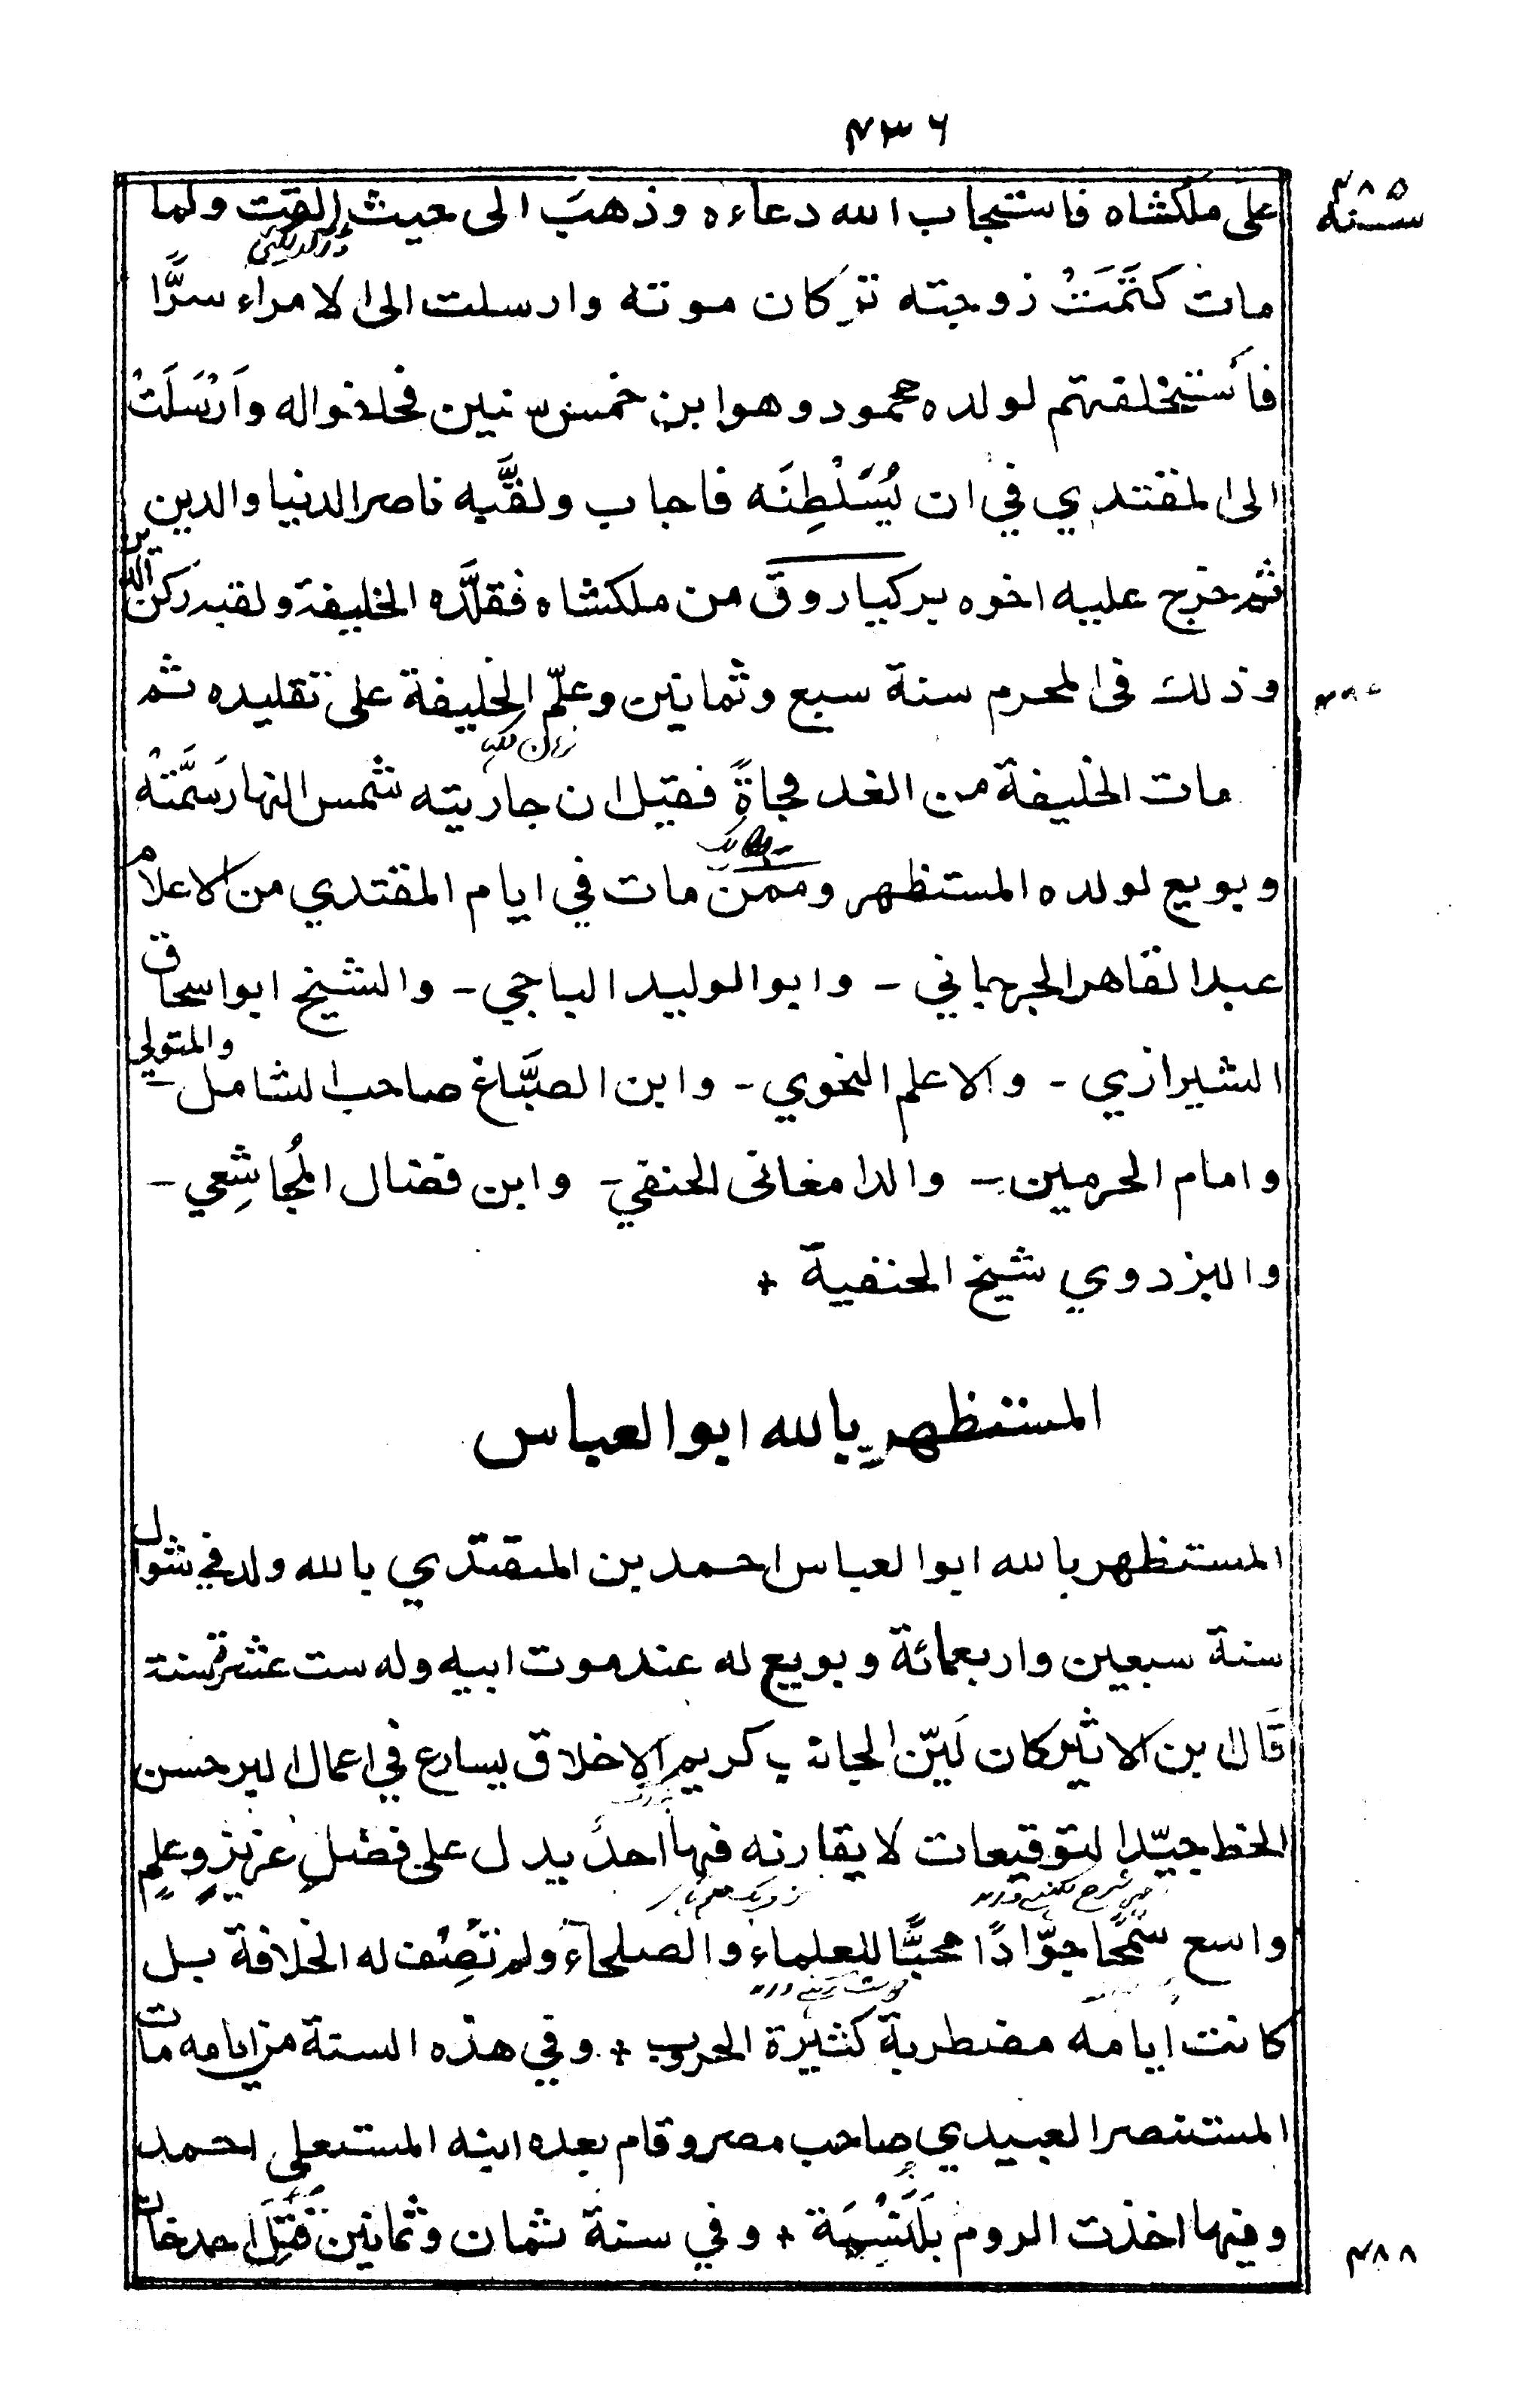 ۴۳۶
سنه ۴۸۵
على ملكشاه فاستجاب الله دعاءه وذهب الى حيث القت ولما
مات كَتَمَتْ زوجته تركان موته وارسلت الى الامراء سرًّا
فاستخلفتهم لولده محمود وهو ابن خمس سنين فحلفوا له وَاَرْسَلَتْ
الى المقتدي في ان يُسَلْطِنَه فاجاب ولقَّبه ناصر الدنيا والدين
ثم خرج عليه اخوه بركياروق من ملكشاه فقلَّده الخليفة ولقبه ركن الدين
وذلك فى المحرم سنة سبع وثمانين وعلّم الخليفة على تقليده ثم
مات الخليفة من الغد فجاةً فقيل ان جاريته شمس النهار سَمَّتْهُ
وبويع لولده المستظهر وممن مات في ايام المقتدي من الاعلام
عبد القاهر الجرجاني - وابو الوليد الباجي - والشيخ ابو اسحاق
الشيرازي - والاعلم النحوي - وابن الصبَّاغ صاحب الشامل - والمتولي
وامام الحرمين - والدامغانى الحنفي - وابن فضال المُجاشِعي -
والبزدوي شيخ الحنفية +
المستظهر بالله ابو العباس
المستظهر بالله ابو العباس احمد بن المقتدي بالله ولد في شوال
سنة سبعين واربعمائة وبويع له عند موت ابيه وله ست عشرة سنة
قَال ابن الاثير كان لَيّن الجانب كريم الاخلاق يسارع في اعمال البر حسن
الخط جيّد التوقيعات لا يقاربه فيها احدٌ يدل على فضلٍ عزيزٍ وعلمٍ
واسع سَمْحًا جوّادًا محبًّا للعلماء والصلحاء ولم تَصْفُ له الخلافة بل
كانت ايامه مضطربة كثيرة الحروب + وفي هذه السنة من ايامه مات
المستنصر العبيدي صاحب مصر وقام بعده ابنه المستعلي احمد
وفيها اخذت الروم بَلَنْسِيَة + وفي سنة ثمان وثمانين قُتِلَ احمد خان
۴۸۸